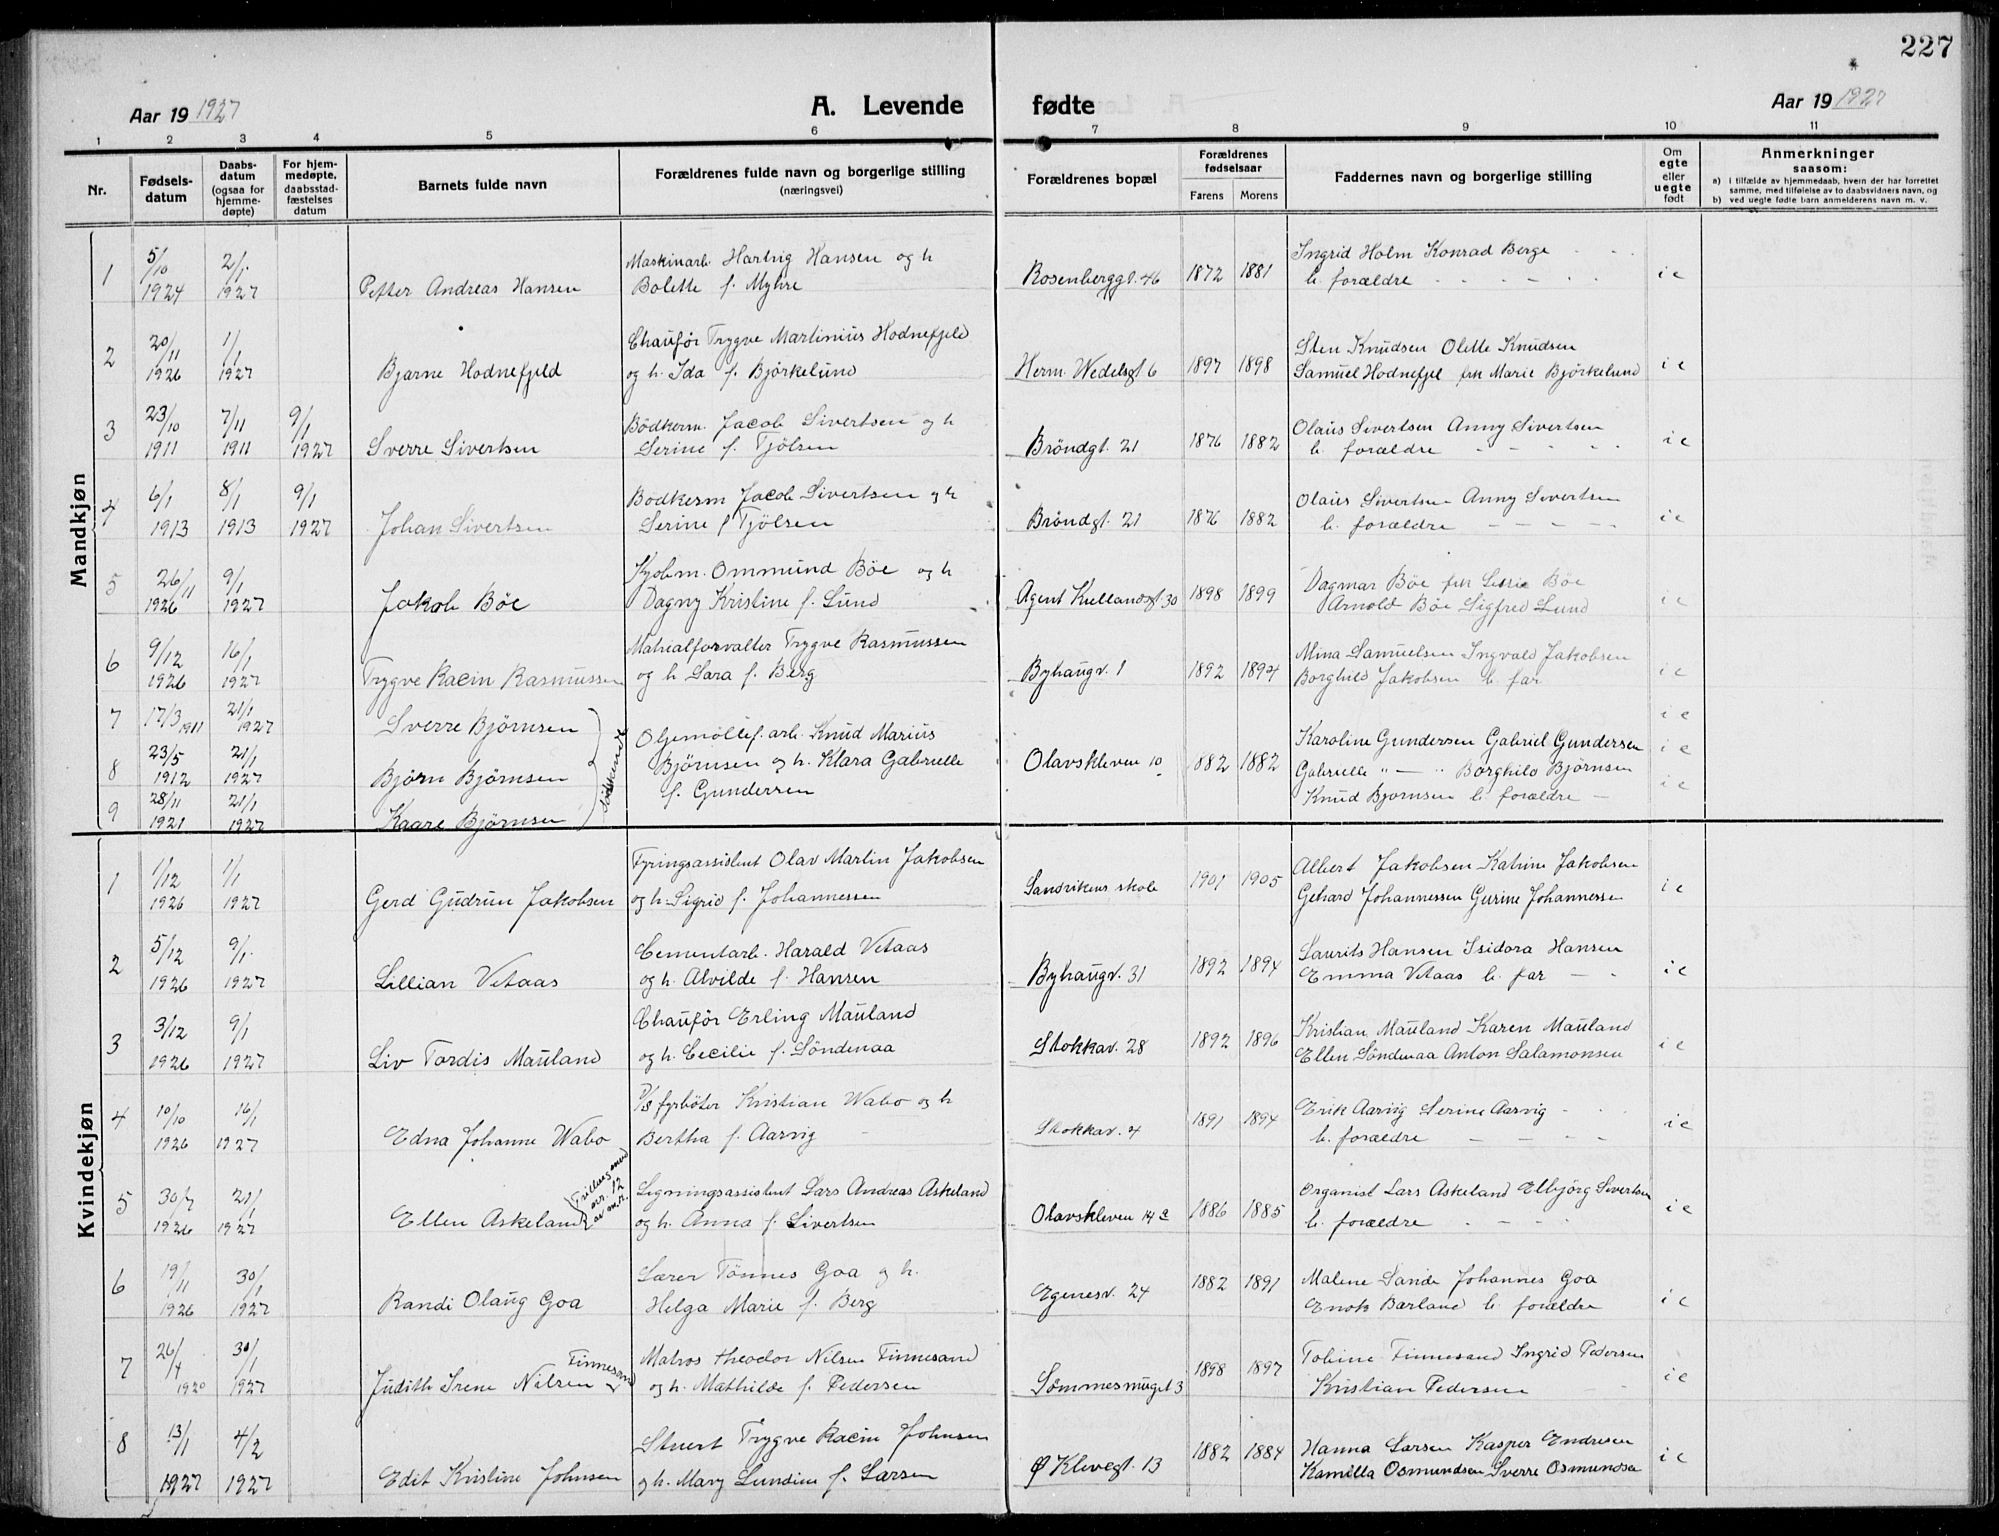 227
Aar 19 1927
A. Levende fødte
Aar 19 1927
1 2 3 4 5 6 7 8 9 10 11
Nr.
Fødsels-
datum
Daabs-
datum
(ogsaa for
hjemme-
døpte)
For hjem-
medøpte,
daabsstad-
fæstelses
datum
Barnets fulde navn
Forældrenes fulde navn og borgerlige stilling
(næringsvei)
Forældrenes bopæl
Forældrenes
fødselsaar
Farens Morens
Faddernes navn og borgerlige stilling
Om
egte
eller
uegte
født
Anmerkninger
saasom:
a) i tilfælde av hjemmedaab, hvem der har forrettet
samme, med tilføielse av to daabsvidners navn, og
b) ved uegte fødte barn anmelderens navn m. v.
Mandkjøn
1 5/10 1924 2/1 1927 Petter Andreas Hansen
Maskinarb. Hartvig Hansen og h
Bolette f. Myhre
Rosenberggt. 46 1872 1881
Ingrid Holm Konrad Berge
b. forældre
i e
2 20/11 1926 1/1 1927 Bjarne Hodnefjeld
Chaufør Trygve Martinius Hodnefjeld
og h. Ida f. Bjørkelund
Herm. Wedelsgt 6 1897 1898
Sten Knudsen Olette Knudsen
Samuel Hodnefjel frk Marie Bjørkelund
i e
3 23/10 1911 7/11 1911 9/1 1927 Sverre Sivertsen
Bödkerm. Jacob Sivertsen og h
Serine f. Tjölsen
Bröndgt. 21 1876 1882
Olaus Sivertsen Anny Sivertsen
b. forældre
i e
4 6/1 1913 8/1 1913 9/1 1927 Johan Sivertsen
Bodkerm Jacob Sivertsen og h
Serine f Tjölsen
Bröndgt. 21 1876 1882
Olaus Sivertsen Anny Sivertsen
b. forældre
i e
5 26/11 1926 9/1 1927 Jakob Böe
Kjobm. Ommund Böe og h
Dagny Kristine f. Lund
Agent Kiellandsgt 30 1898 1899
Dagmar Böe frk Böe
Arnold Böe Sigfred Lund
i e
6 9/12 1926 16/1 1927 Trygve Racin Rasmussen
Matrialforvalter Trygve Rasmussen
og h Sara f. Berg
Byhaugv. 1 1892 1894
Mina Samuelsen Ingvald Jakobsen
Borghild Jakobsen b. far
i e
7 17/3 1911 21/1 1927 Sverre Bjørnsen
8 23/5 1912 21/1 1927 Björn Björnsen
9 28/11 1921 21/1 1927 Kaare Björnsen
Södskende
Oljemöllef. arb. Knud Marius
Björnsen og h. Klara Gabrielle
f. Gundersen
Olavskleven 10 1882 1882
Karoline Gundersen Gabriel Gundersen
Gabrielle " — " Borghild Björnsen
Knud Bjornsen b. forældre —
i e
i e
i e
Kvindekjøn
1 1/12 1926 1/1 1927 Gerd Gudrun Jakobsen
Fyringsassistent Olav Martin Jakobsen
og h. Sigrid f. Johannessen
Sandvikens skole 1901 1905
Albert Jakobsen Katrine Jakobsen
Gehard Johannessen Gurine Johannessen
i e
2 5/12 1926 9/1 1927 Lillian Vetaas
Cementarb. Harald Vetaas
og h. Alvilde f. Hansen
Byhaugv. 31 1892 1894
Laurits Hansen Isidora Hansen
Emma Vetaas b. far
i e
3 3/12 1926 9/1 1927 Liv Tordis Mauland
Chaufør Erling Mauland
og h. Cecilie f. Söndenaa
Stokkav. 28 1892 1896
Kristian Mauland Karen Mauland
Ellen Söndenaa Anton Salamonsen
i e
4 10/10 1926 16/1 1927 Edna Johanne Wabo
D/S fyrböter Kristian Wabo og h
Bertha f. Aarvig
Stokkav. 4 1891 1894
Erik Aarvig Serine Aarvig
b. forældre
i e
5 30/7 1926 21/1 1927 Ellen Askeland
Tvilling med
nr. 12
av m.k.
Ligningsassistent Lars Andreas Askeland
og h. Anna f. Sivertsen
Olavskleven 14 c 1886 1885
Organist Lars Askeland Elbjörg Sivertsen
b. forældre
i e
6 19/11 1926 30/1 1927 Randi Olaug Goa
Lærer Tönnes Goa og h.
Helga Marie f. Berg
Egenesv. 24 1882 1891
Malene Sande Johannes Goa
Enok Barland b. forældre
i e
7 26/4 1920 30/1 1927 Judith Irene Nilsen Finnesand
Matros Theodor Nilsen Finnesand
og h. Mathilde f. Pedersen
Sömmesmuget 3 1898 1897
Tobine Finnesand Ingrid Pedersen
Kristian Pedersen
i e
8 13/1 1927 4/2 1927 Edit Kristine Johnsen
Stuert Trygve Racin Johnsen
og h. Mary Lundine f. Larsen
Ø Klevegt. 13 1882 1884
Hanna Larsen Kasper Endresen
Kamilla Osmundsen Sverre Osmundsen
i e